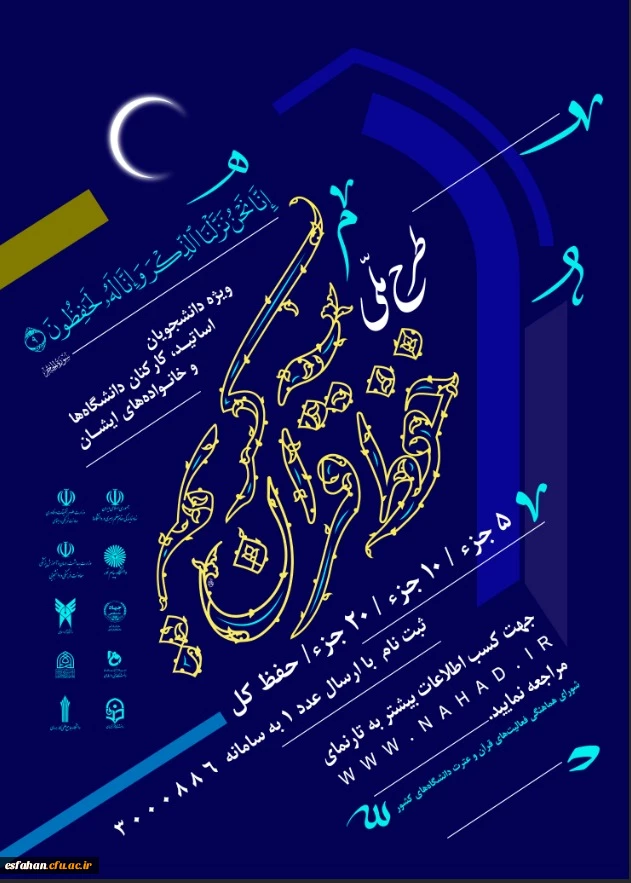 إِنَّا نَحْنُ نَزَّلْنَا الذِّكْرَ وَإِنَّا لَهُ لَحَافِظُونَ
طرح ملّی
حفظ قرآن کریم
ویژه دانشجویان
اساتید، کارکنان دانشگاه‌ها
و خانواده‌های ایشان
۵ جزء / ۱۰ جزء / ۲۰ جزء / حفظ کل
ثبت نام با ارسال عدد ۱ به سامانه ۳۰۰۰۰۸۸۶
جهت کسب اطلاعات بیشتر به تارنمای
WWW.NAHAD.IR
مراجعه نمایید.
شورای هماهنگی فعالیت‌های قرآن و عترت دانشگاه‌های کشور
esfahan.cfu.ac.ir